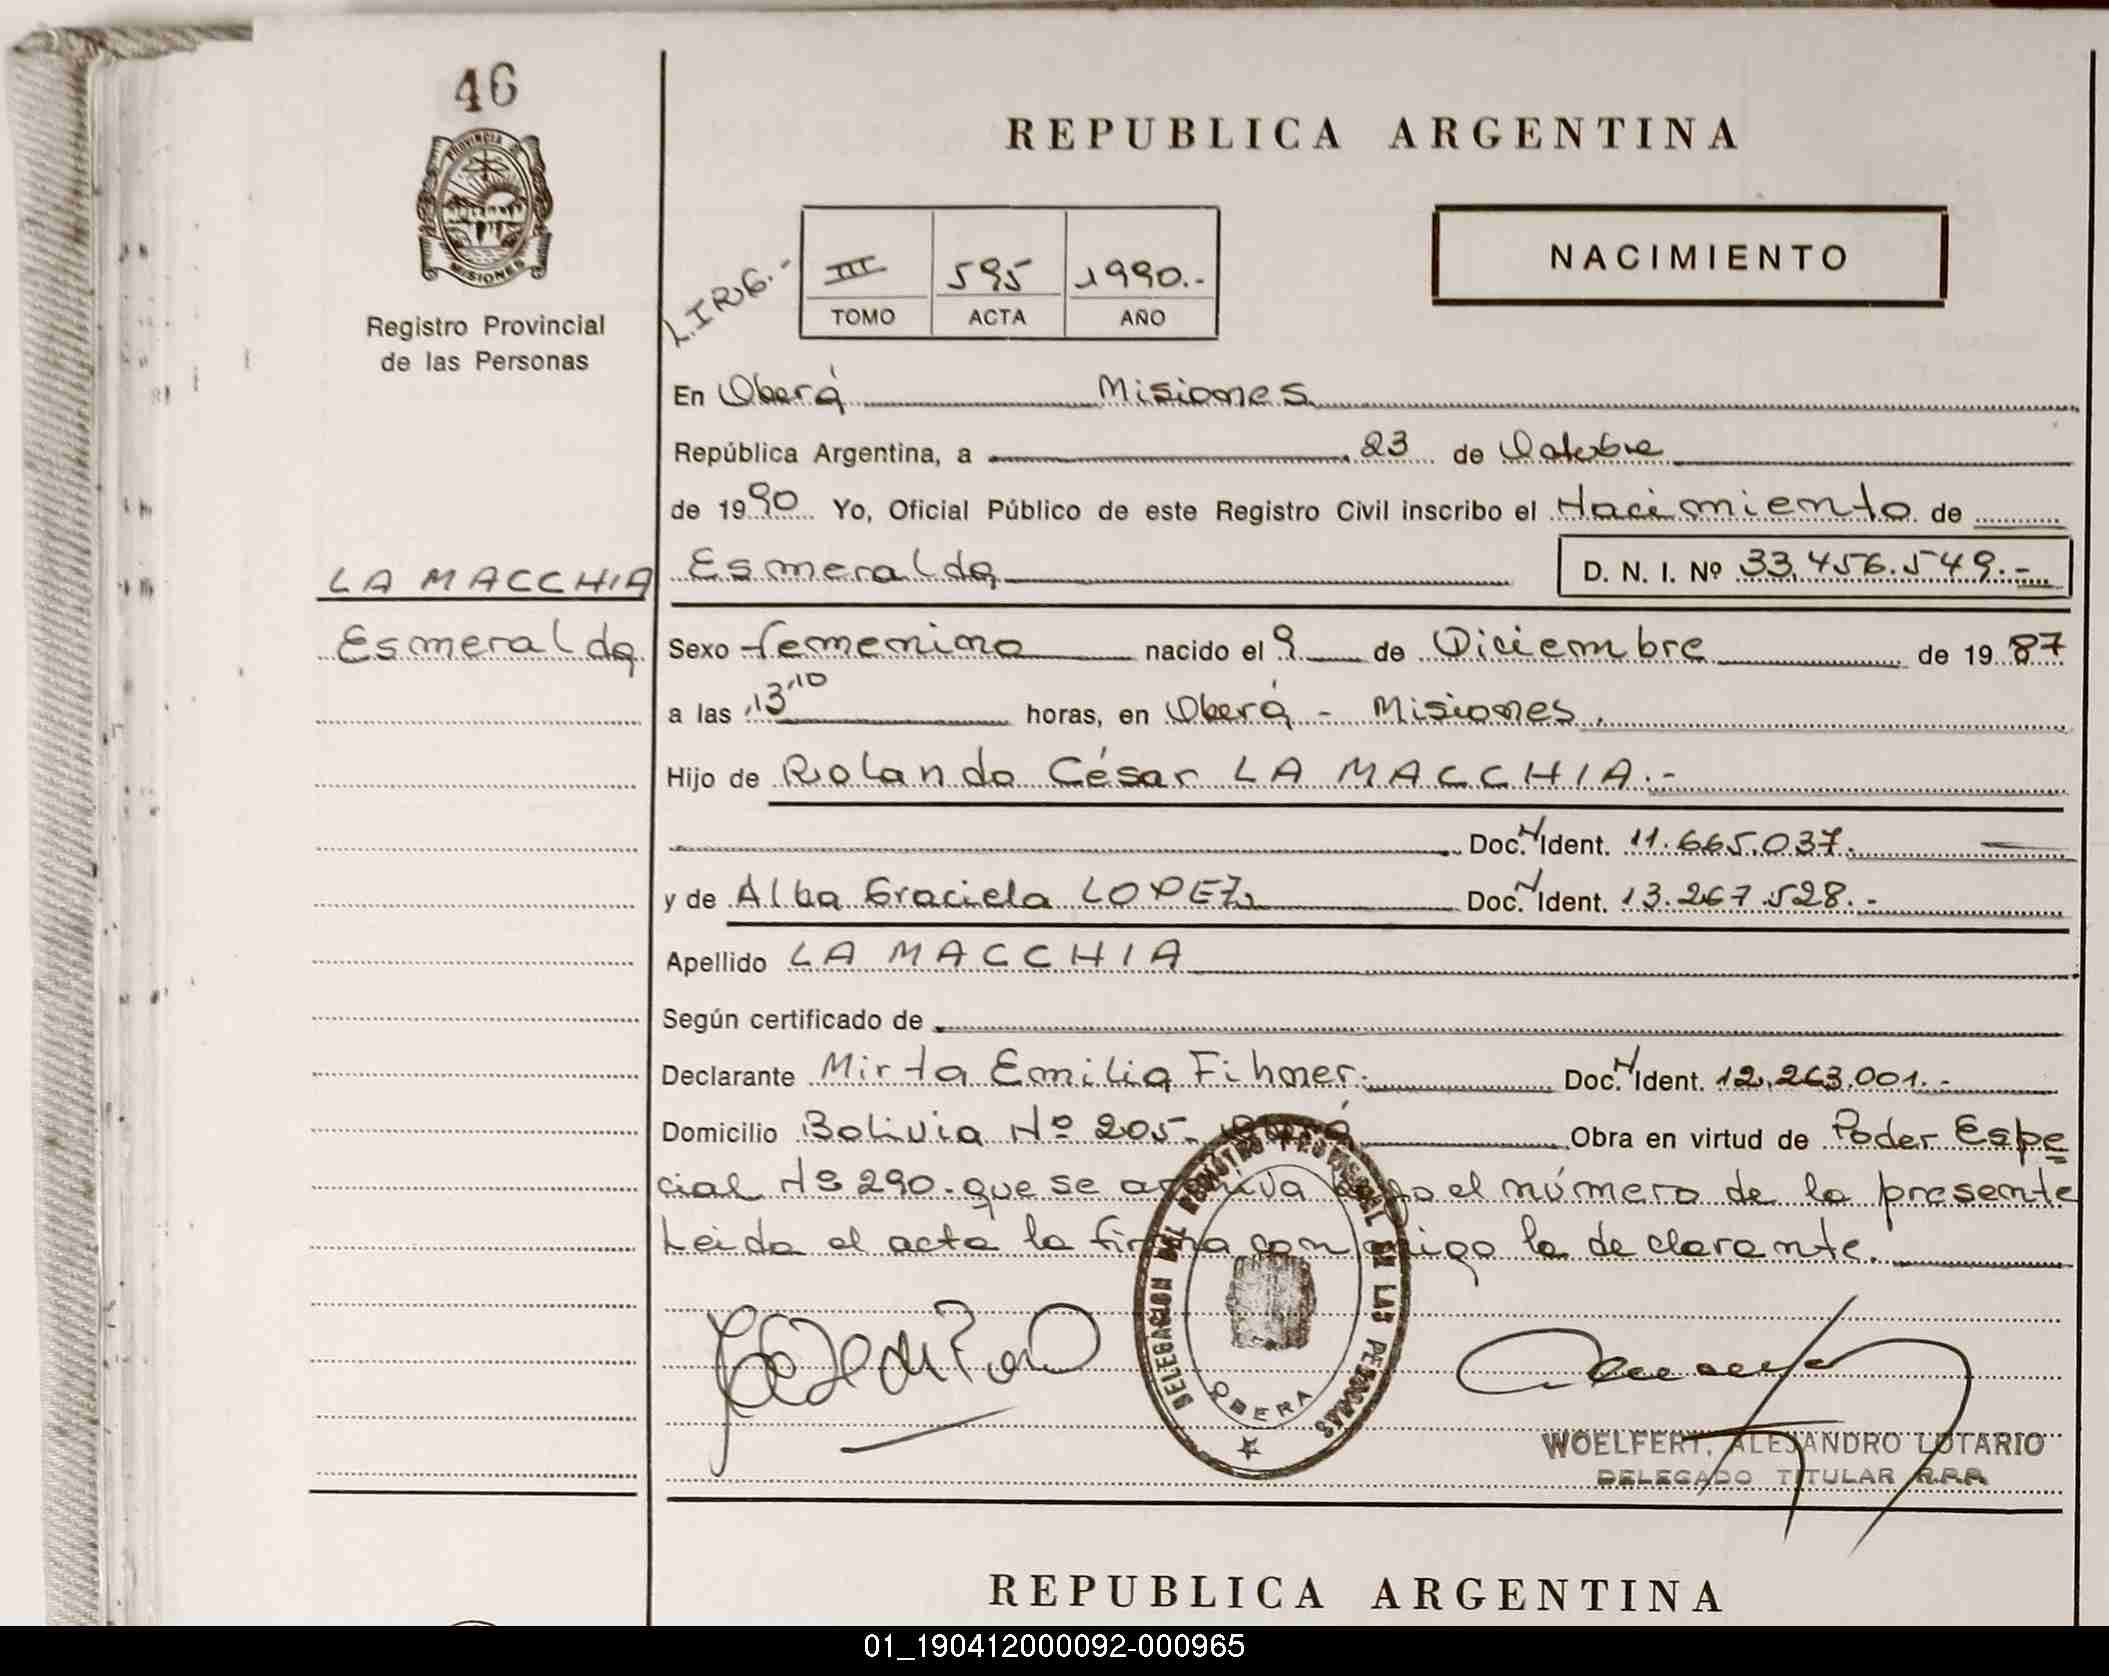 46
PROVINCIA D
MISIONES
Registro Provincial
de las Personas
REPUBLICA ARGENTINA
NACIMIENTO
III 595 1990.-
TOMO ACTA AÑO
En Oberá Misiones
República Argentina, a 23 de Octubre
de 1990 Yo, Oficial Público de este Registro Civil inscribo el Nacimiento de
LA MACCHIA Esmeralda D. N. I. Nº 33.456.549.-
Esmeralda Sexo femenino nacido el 9 de Diciembre de 1987
a las 13,10 horas, en Oberá - Misiones.
Hijo de Rolando César LA MACCHIA.-
Doc. N Ident. 11.665.037.
y de Alba Graciela LOPEZ Doc. N Ident. 13.267.528.-
Apellido LA MACCHIA
Según certificado de
Declarante Mirta Emilia Fihner. Doc. N Ident. 12.263.001.-
Domicilio Bolivia Nº 205- Oberá Obra en virtud de Poder Espe
cial Nº 290. que se archiva bajo el número de la presente
Leida el acta la firma conmigo la declarante.
DELEGACION DEL REGISTRO PROVINCIAL DE LAS PERSONAS
OBERA
WOELFERT, ALEJANDRO LOTARIO
DELEGADO TITULAR R.P.P.
REPUBLICA ARGENTINA
01_190412000092-000965